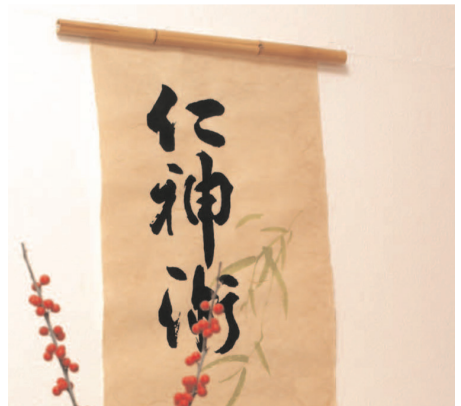 仁神術